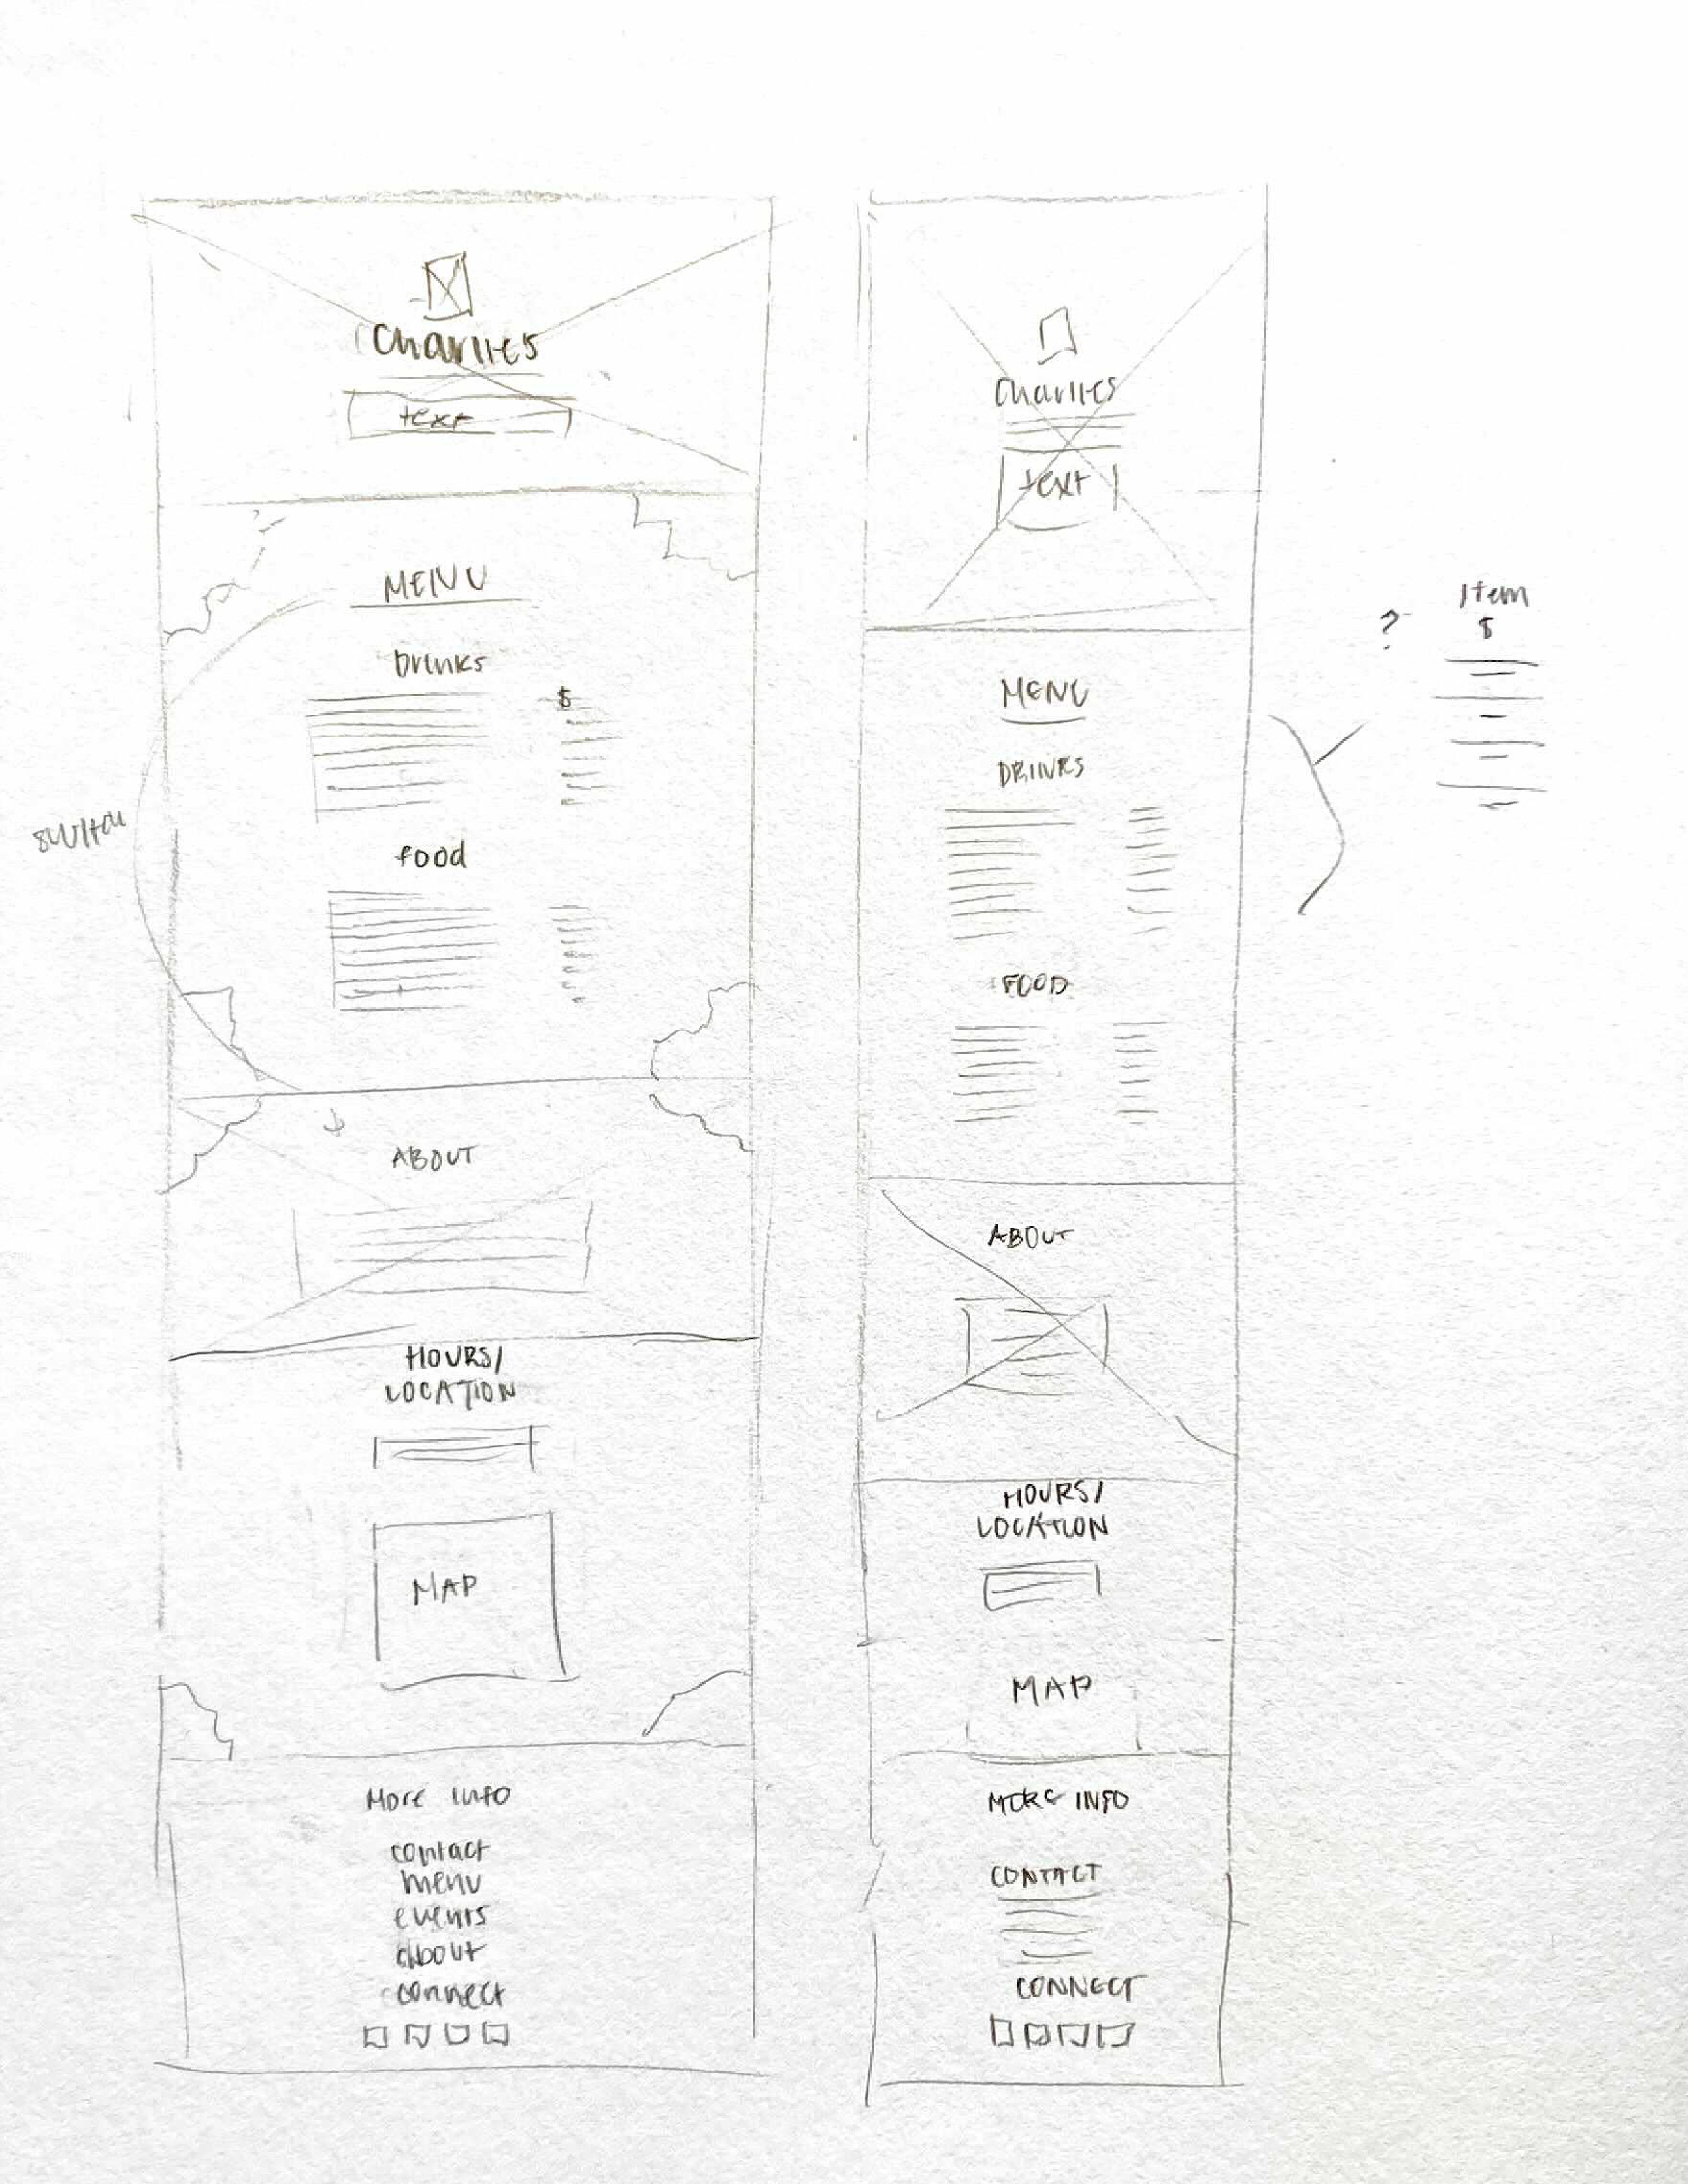 Charlies
text
MENU
Drinks
$
food
switch
ABOUT
HOURS/
LOCATION
MAP
More Info
contact
menu
events
about
connect
Charlies
text
MENU
DRINKS
FOOD
ABOUT
HOURS/
LOCATION
MAP
MORE INFO
CONTACT
CONNECT
?
Item
$